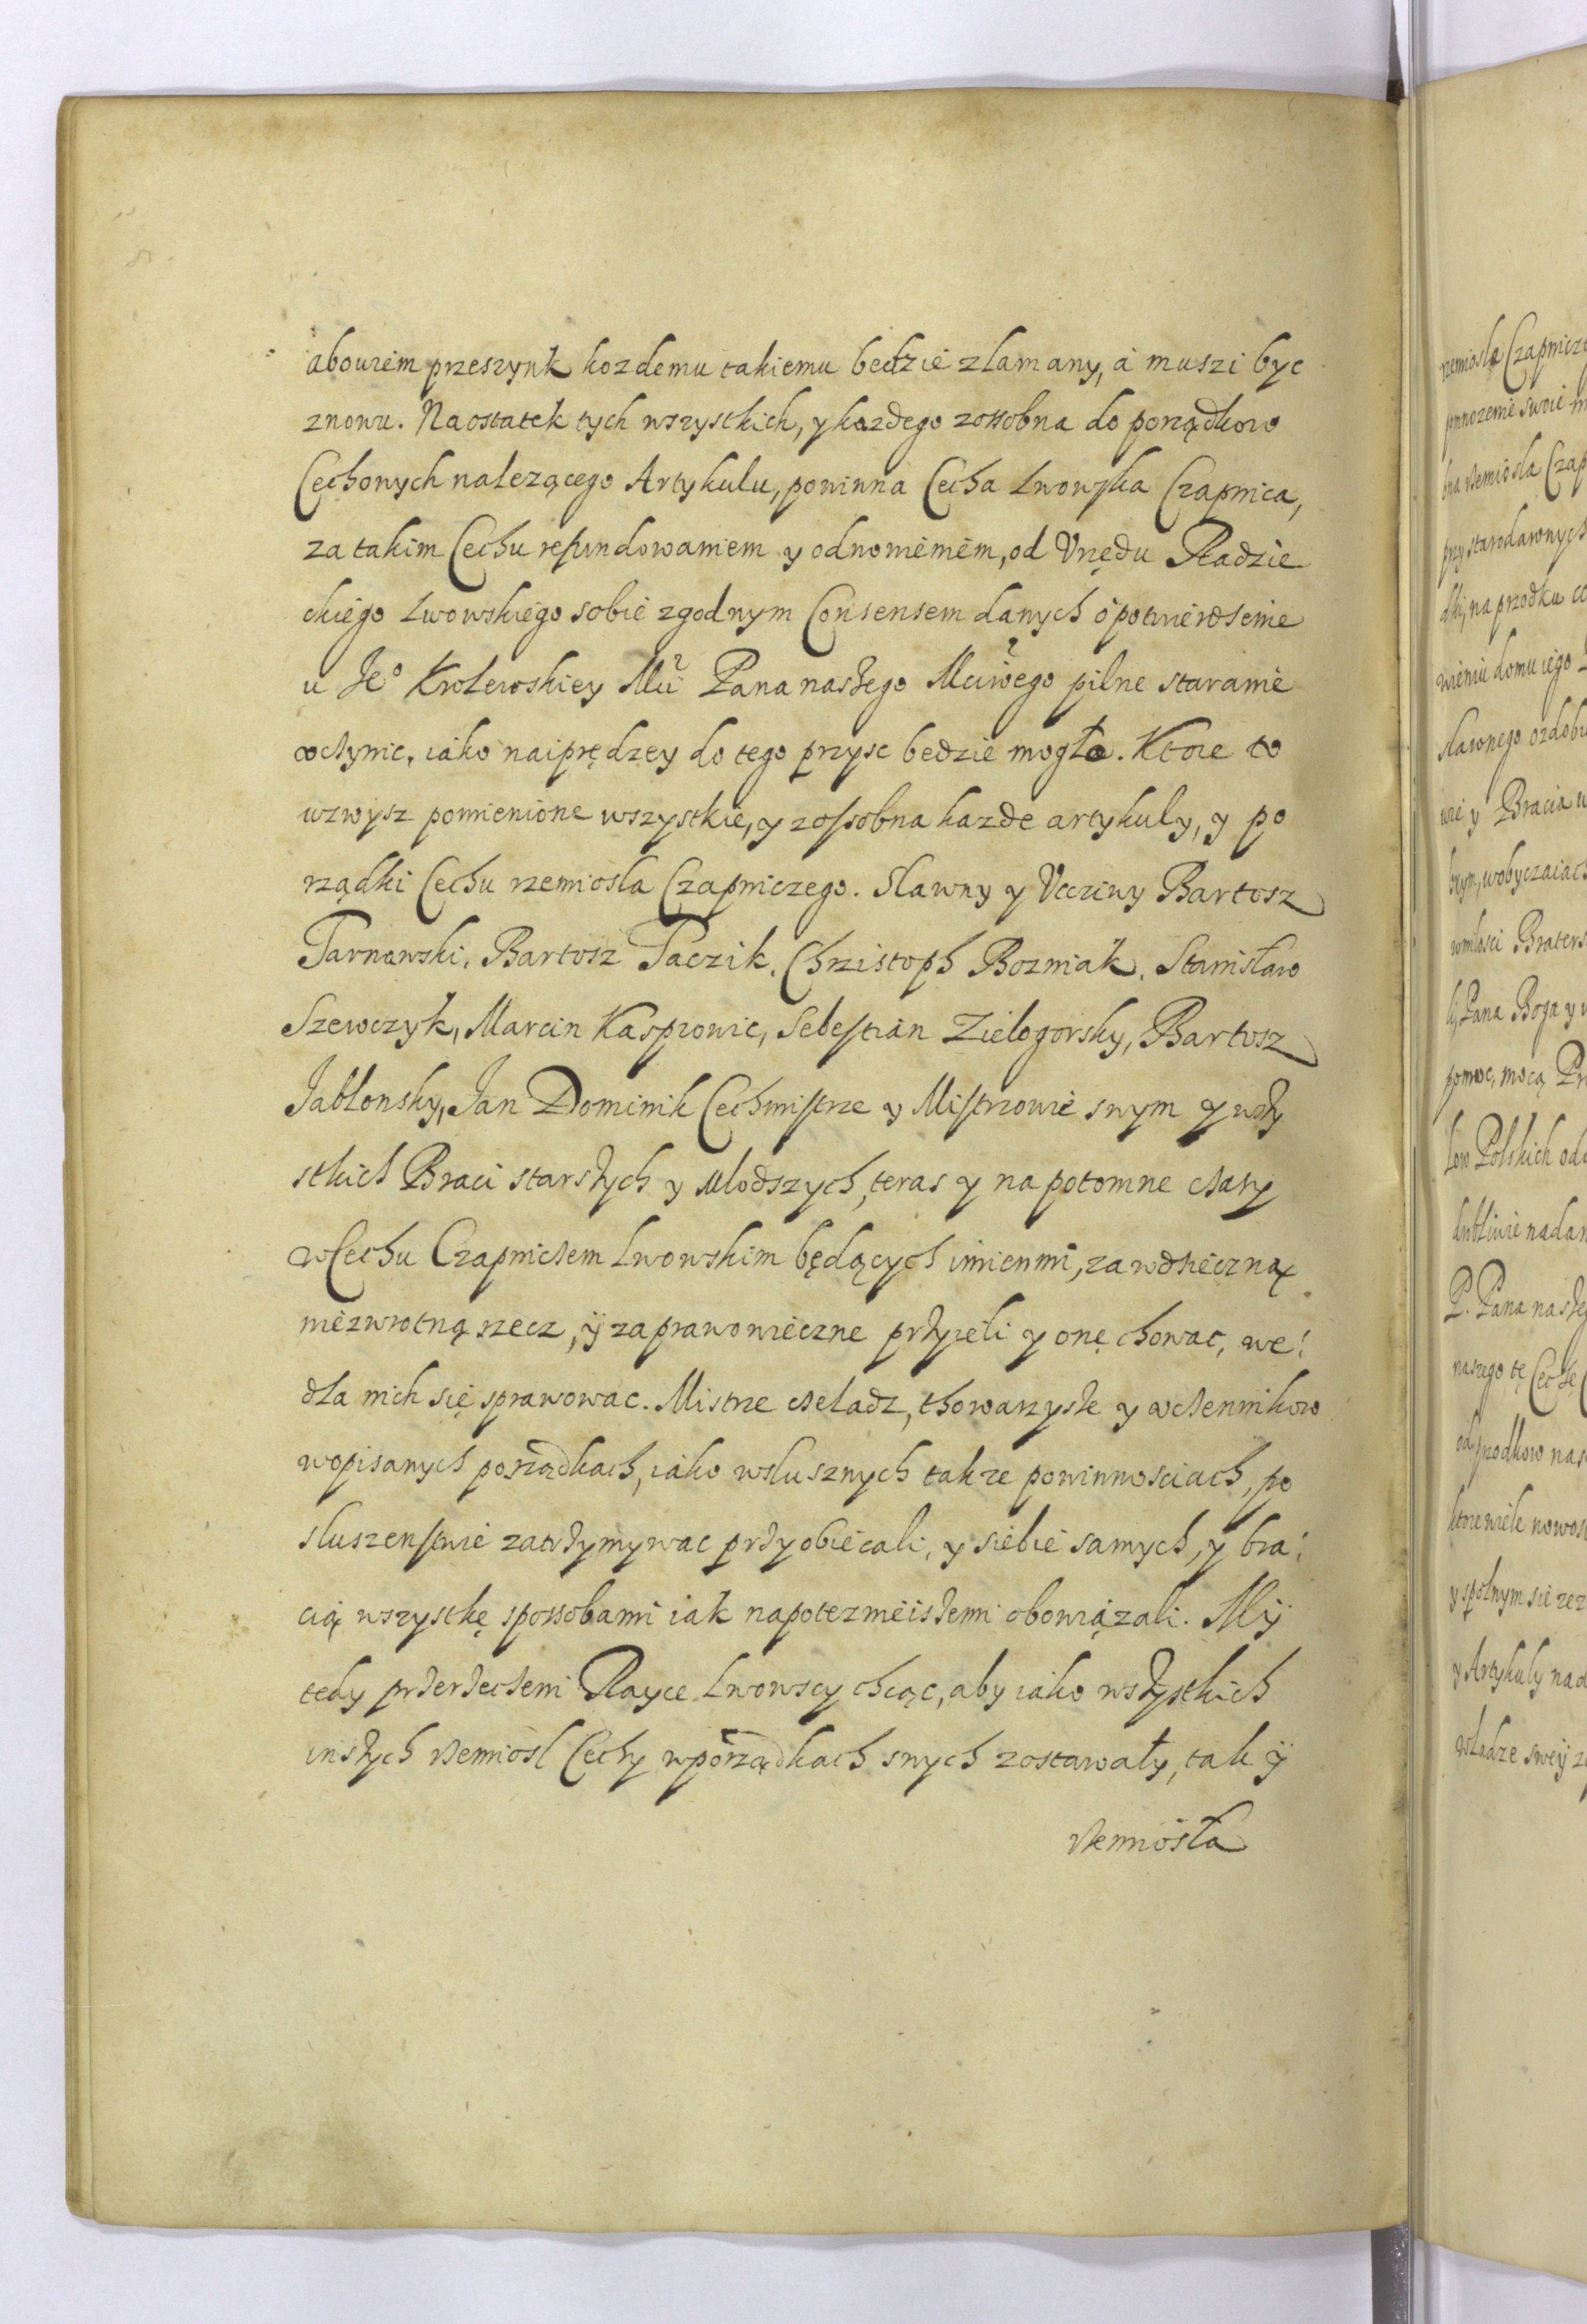 abowiem przeszynk kozdemu takiemu bedzie zlamany, á muszi byc
znowu. Naostatek tych wszystkich, y kazdego zossobna do porządkow
Cechowych nalezącego Artykulu, powinna Cecha Lwowska Czapnica,
za takim Cechu refundowaniem y odnowieniem, od Vrzędu Radzie
ckiego Lwowskiego sobie zgodnym Consensem danych o potwierdsenie
u Jeº Krolewskiey Mći Pana naszego Mciwego pilne staranie
vczynic, iako naiprędzey do tego przysc bedzie mogła. Ktore to
wzwysz pomienione wszystkie, y zossobna kazde artykuly, y po
rządki Cechu rzemiosla Czapniczego. Slawny y Vcciwy Bartosz
Tarnawski, Bartosz Taczik, Chrzistoph Bozniak, Stanisław
Szewczyk, Marcin Kasprowic, Sebestian Zielogorsky, Bartosz
Jablonsky, Jan Dominik Cechmistrze y Mistrzowie swym y wszy
stkich Braci starszych y Mlodszych, teras y na potomne czasy
w Cechu Czapniczem Lwowskim będących imienmi, za wdzieczną
niezwrotną rzecz, ÿ zaprawowieczne przyieli y onę chowac, we:
dla nich się sprawowac. Mistrze czeladz, thowarzysze y vczennikow
wopisanych porządkach, iako wslusznych takze powinnosciach, po
sluszenstwie zatrzymywac przyobiecali, y siebie samych, y bra:
cią wszystkę spossobami iak napotezmeiszemi obowiązali. Mÿ
tedy przerzeczeni Rayce Lwowscy chcąc, aby iako wszystkich
inszych rzemiosl Cechy wporządkach swych zostawały, tak ÿ
rzemiosła